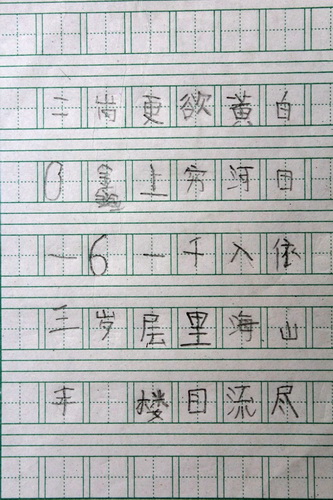 白日依山尽
黄河入海流
欲穷千里目
更上一层楼
6岁
二0一三年